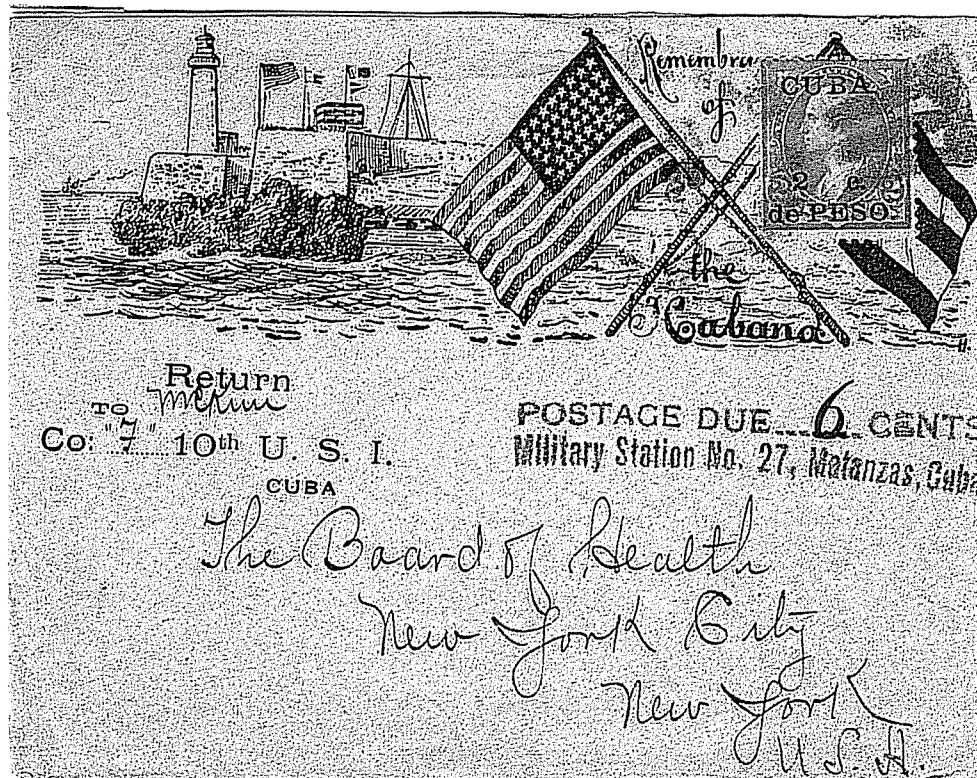 Remembra
of
the
Habana
CUBA
2 c.
de PESO.
Return
TO
Co: " " 10th U. S. I.
CUBA
POSTAGE DUE 6 CENTS
Military Station No. 27, Matanzas, Cuba
The Board of Health
New York City
New York
U.S.A.